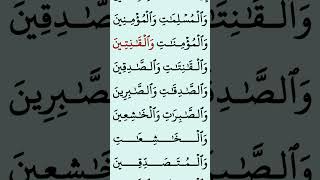 وَٱلۡمُسۡلِمَٰتِ وَٱلۡمُؤۡمِنِينَ
وَٱلۡمُؤۡمِنَٰتِ وَٱلۡقَٰنِتِينَ
وَٱلۡقَٰنِتَٰتِ وَٱلصَّٰدِقِينَ
وَٱلصَّٰدِقَٰتِ وَٱلصَّٰبِرِينَ
وَٱلصَّٰبِرَٰتِ وَٱلۡخَٰشِعِينَ
وَٱلۡخَٰشِعَٰتِ
وَٱلۡمُتَصَدِّقِينَ